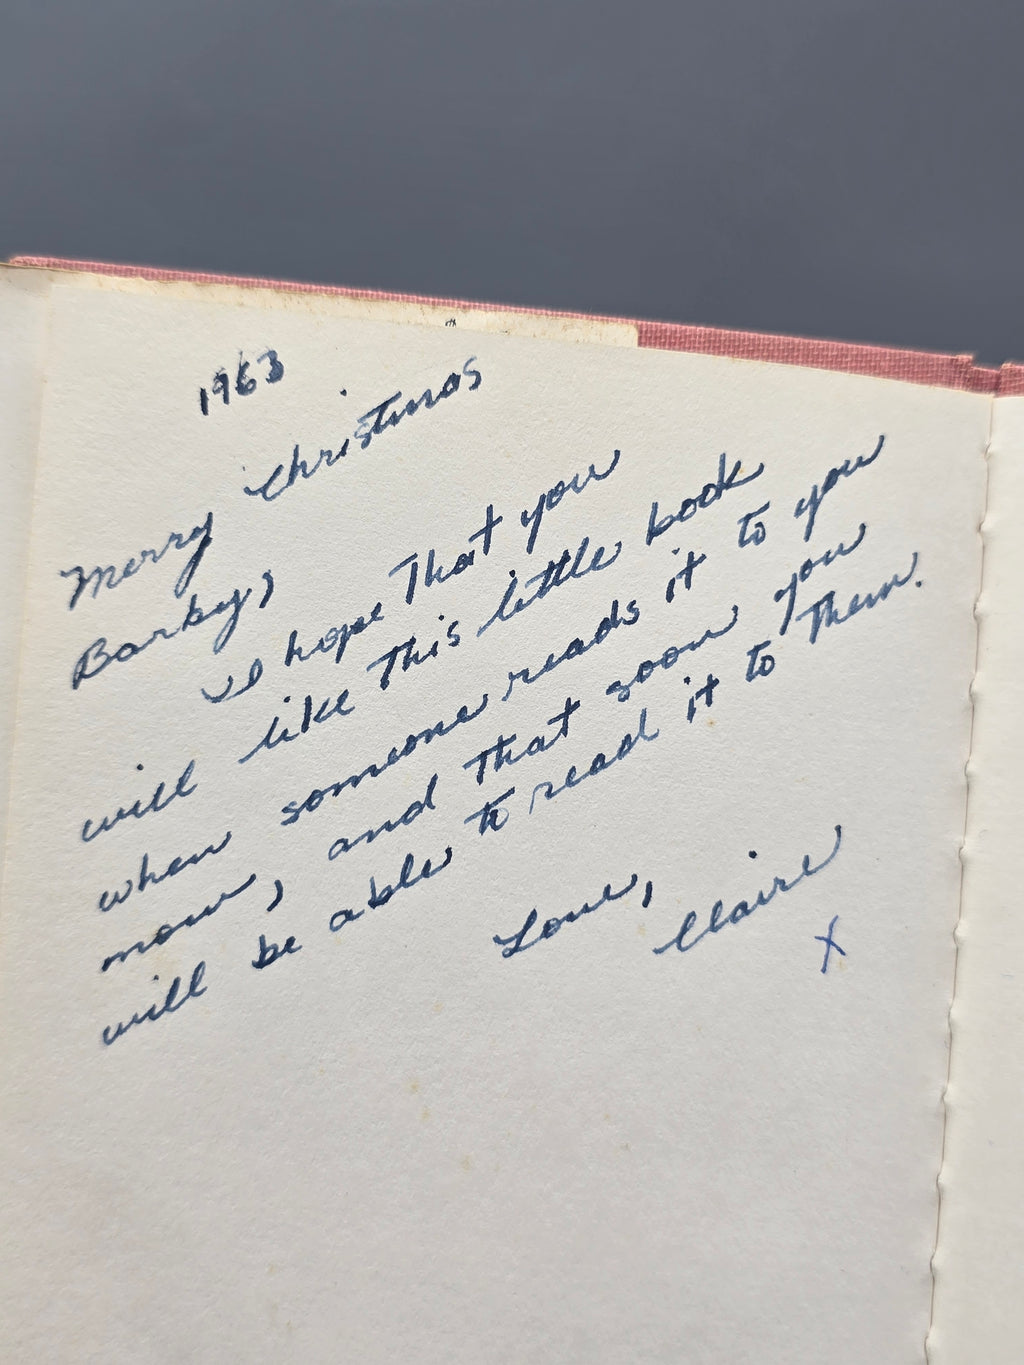 1963
Merry Christmas
Barby,
I hope that you
will like this little book
when someone reads it to you
now, and that soon you
will be able to read it to them.
Love,
Claire
X